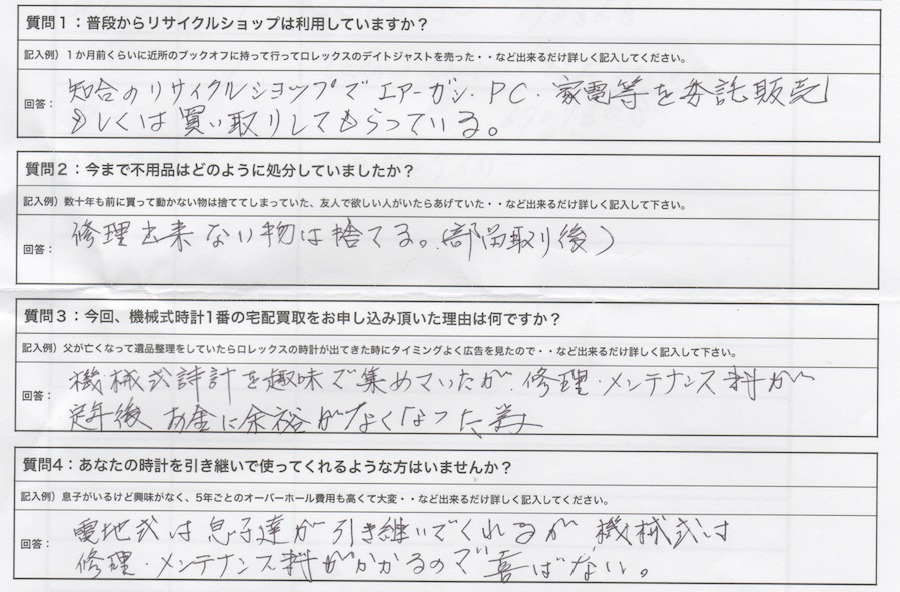 質問1：普段からリサイクルショップは利用していますか？
記入例）1か月前くらいに近所のブックオフに持って行ってロレックスのデイトジャストを売った・・など出来るだけ詳しく記入してください。
回答：
知合のリサイクルショップでエアーガン・PC・家電等を委託販売
もしくは買い取りしてもらっている。
質問2：今まで不用品はどのように処分していましたか？
記入例）数十年も前に買って動かない物は捨ててしまっていた、友人で欲しい人がいたらあげていた・・など出来るだけ詳しく記入して下さい。
回答：
修理出来ない物は捨てる。（部品取り後）
質問3：今回、機械式時計1番の宅配買取をお申し込み頂いた理由は何ですか？
記入例）父が亡くなって遺品整理をしていたらロレックスの時計が出てきた時にタイミングよく広告を見たので・・など出来るだけ詳しく記入して下さい。
回答：
機械式時計を趣味で集めていたが、修理・メンテナンス料が
定年後お金に余裕がなくなった
質問4：あなたの時計を引き継いで使ってくれるような方はいませんか？
記入例）息子がいるけど興味がなく、5年ごとのオーバーホール費用も高くて大変・・など出来るだけ詳しく記入してください。
回答：
電地式は息子達が引き継いでくれるが機械式は
修理・メンテナンス料がかかるので喜ばない。